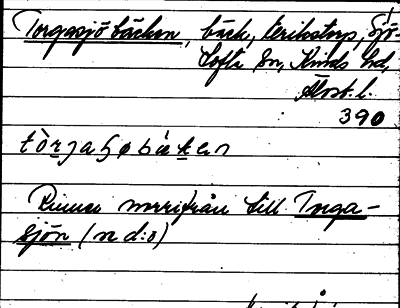 Torgasjöbäcken, bäck, Eriksторp, Sjö-
tofta sn, Kinds hd,
Älvsb. l.
390
Rinner norrifrån till Torga-
sjön (se d:o)